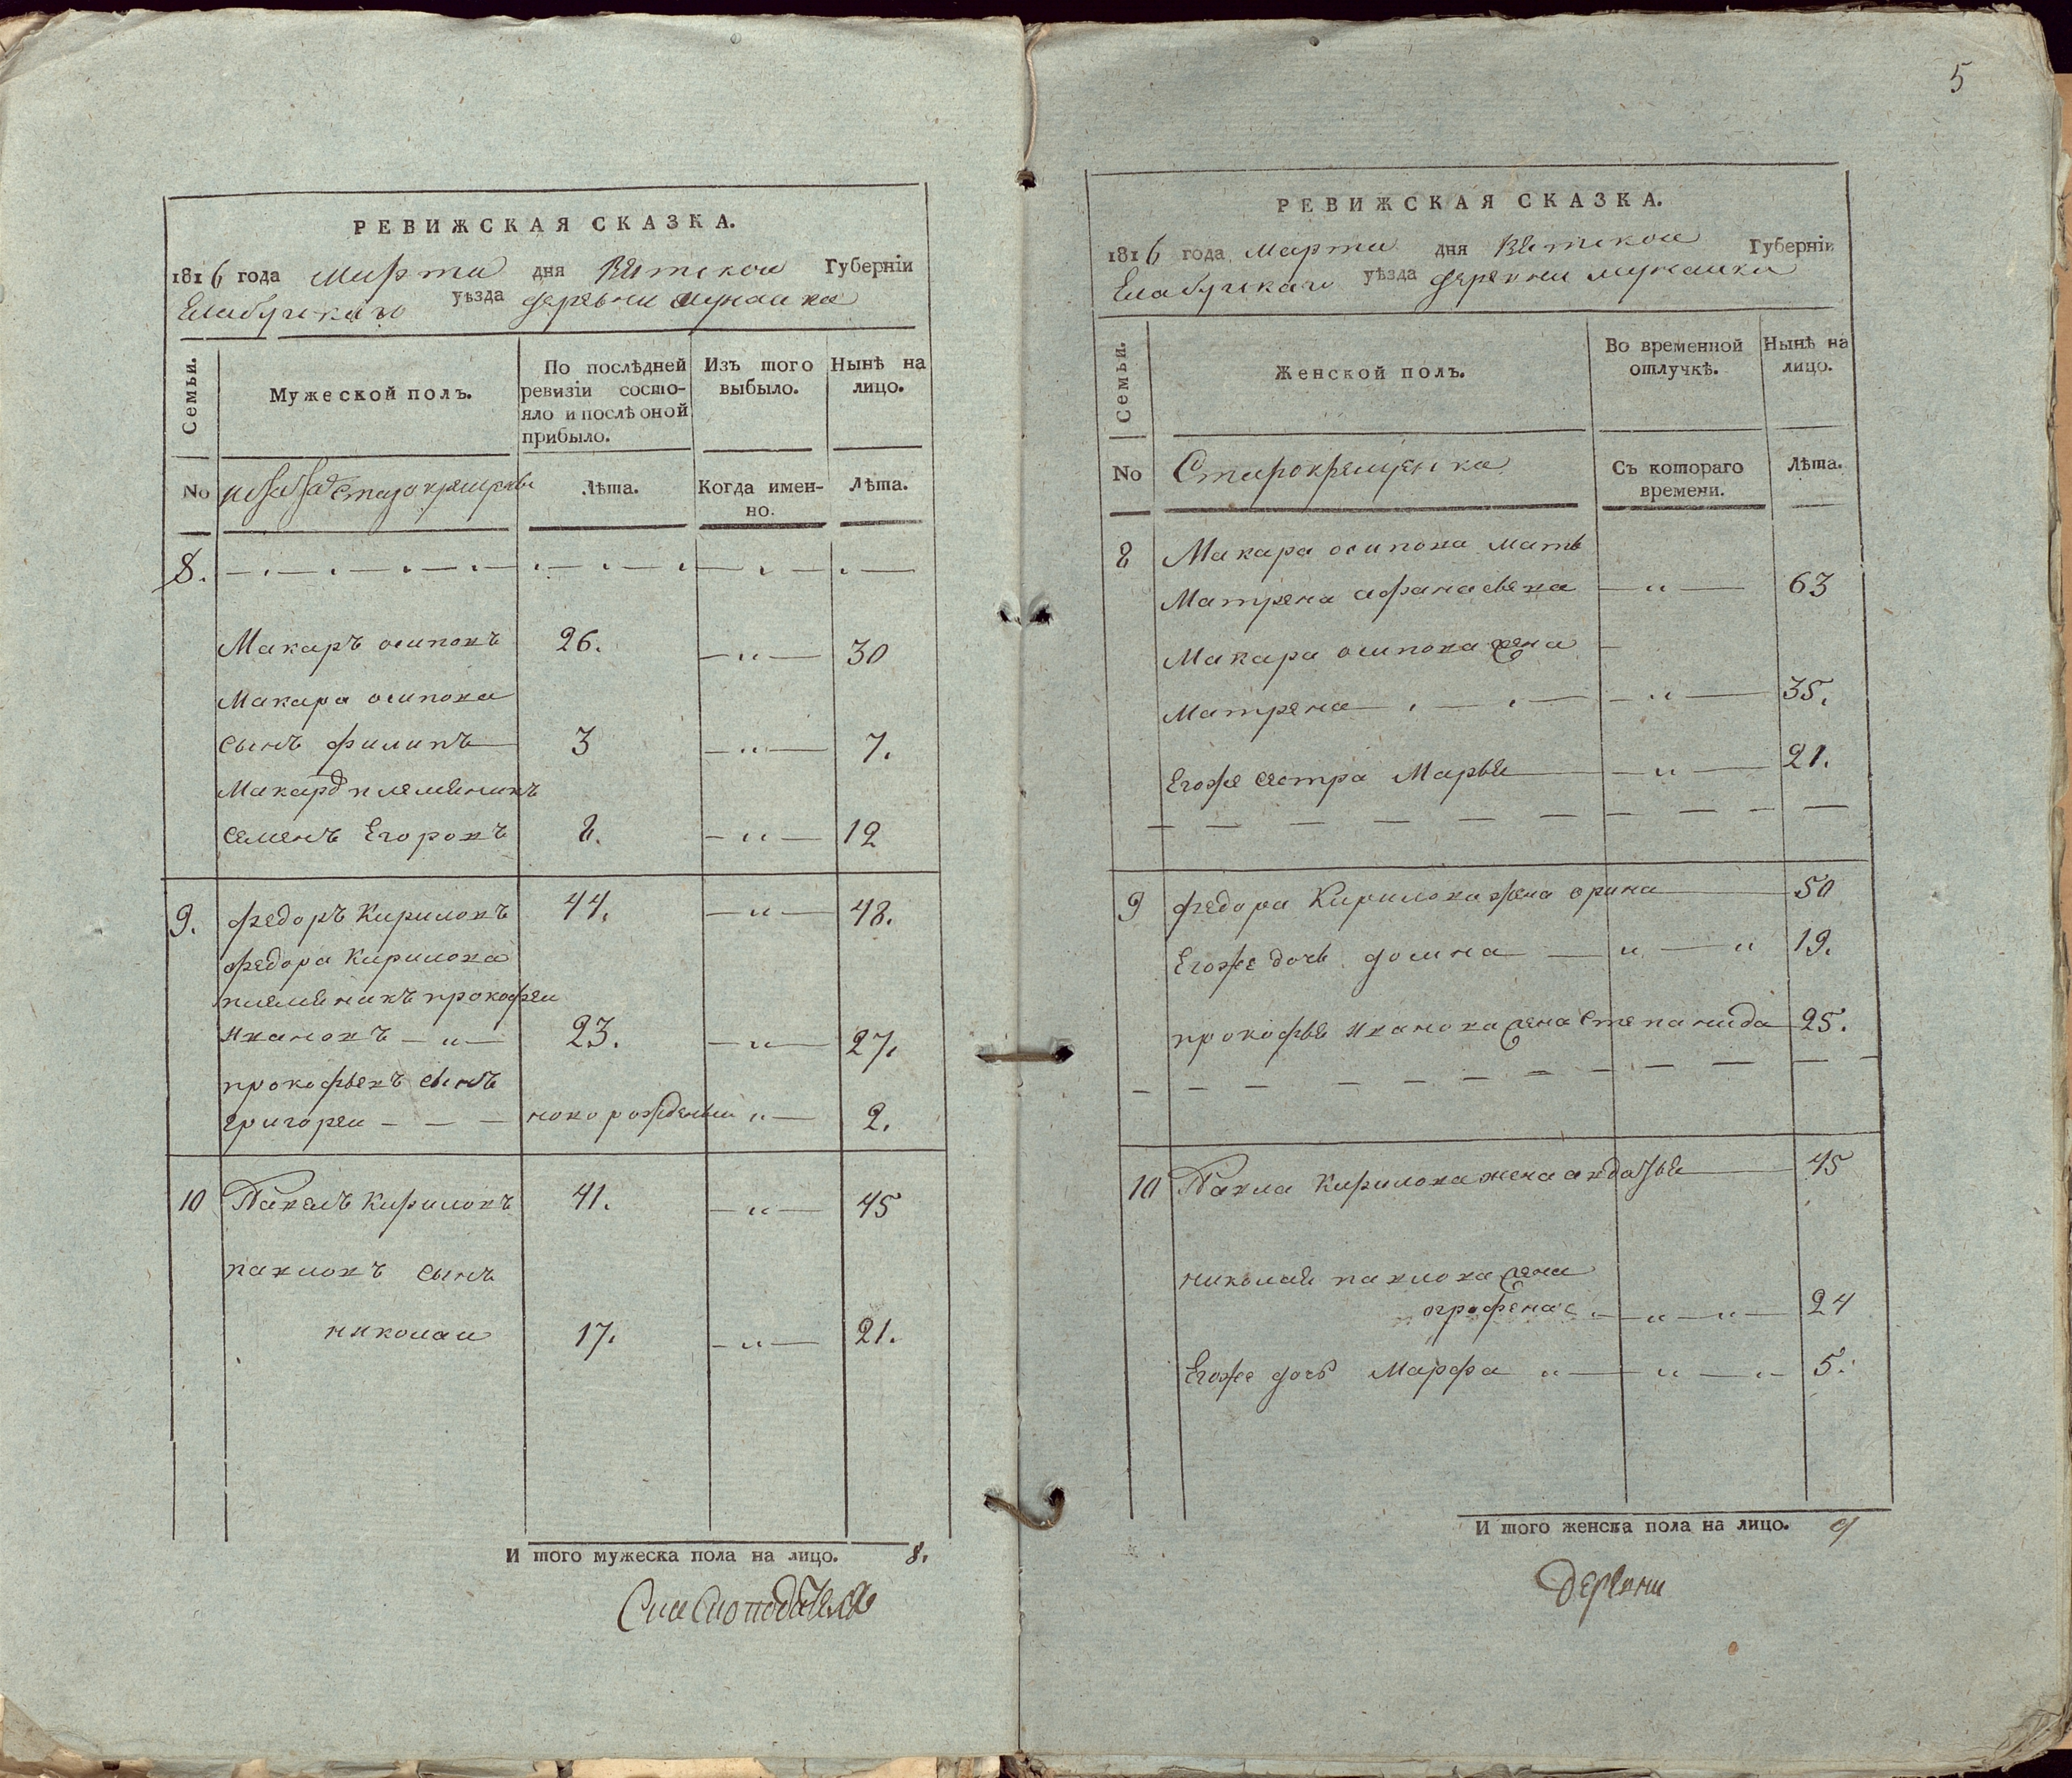 РЕВИЖСКАЯ СКАЗКА.
1816 года Марта дня Вятской Губерніи
Елабужскаго уѣзда деревни Мунайка
Семьи.
Мужеской полъ.
По послѣдней ревизіи состояло и послѣ оной прибыло.
Изъ того выбыло.
Нынѣ на лицо.
No
старокрещены
Лѣта.
Когда именно.
Лѣта.
8.
Макаръ осиповъ 26. 30
Макара осипова
сынъ филипъ 3 7.
Макара племяникъ
семенъ Егоровъ 8. 12
9. федоръ Кириловъ 44. 48.
федора Кирилова
племяникъ прокофеи
ивановъ 23. 27.
прокофьевъ сынъ
григореи новорожденыи 2.
10 Павелъ Кириловъ 41. 45
павловъ сынъ
николаи 17. 21.
И того мужеска пола на лицо. 8.
5
РЕВИЖСКАЯ СКАЗКА.
1816 года Марта дня Вятской Губерніи
Елабужскаго уѣзда деревни мунайка
Семьи.
Женской полъ.
Во временной отлучкѣ.
Нынѣ на лицо.
No
Старокрещенка
Съ котораго времени.
Лѣта.
8 Макара осипова мать
Матрена афанасьева 63
Макара осипова жена
Матрена 35.
Егоже сестра Марья 21.
9 федора Кирилова жена орина 50
Егоже дочь домна 19.
прокофья иванова жена степанида 25.
10 Павла Кирилова жена авдотья 45
николая павлова жена
огрофена 24
Егоже дочь Марфа 5.
И того женска пола на лицо. 9
деревни